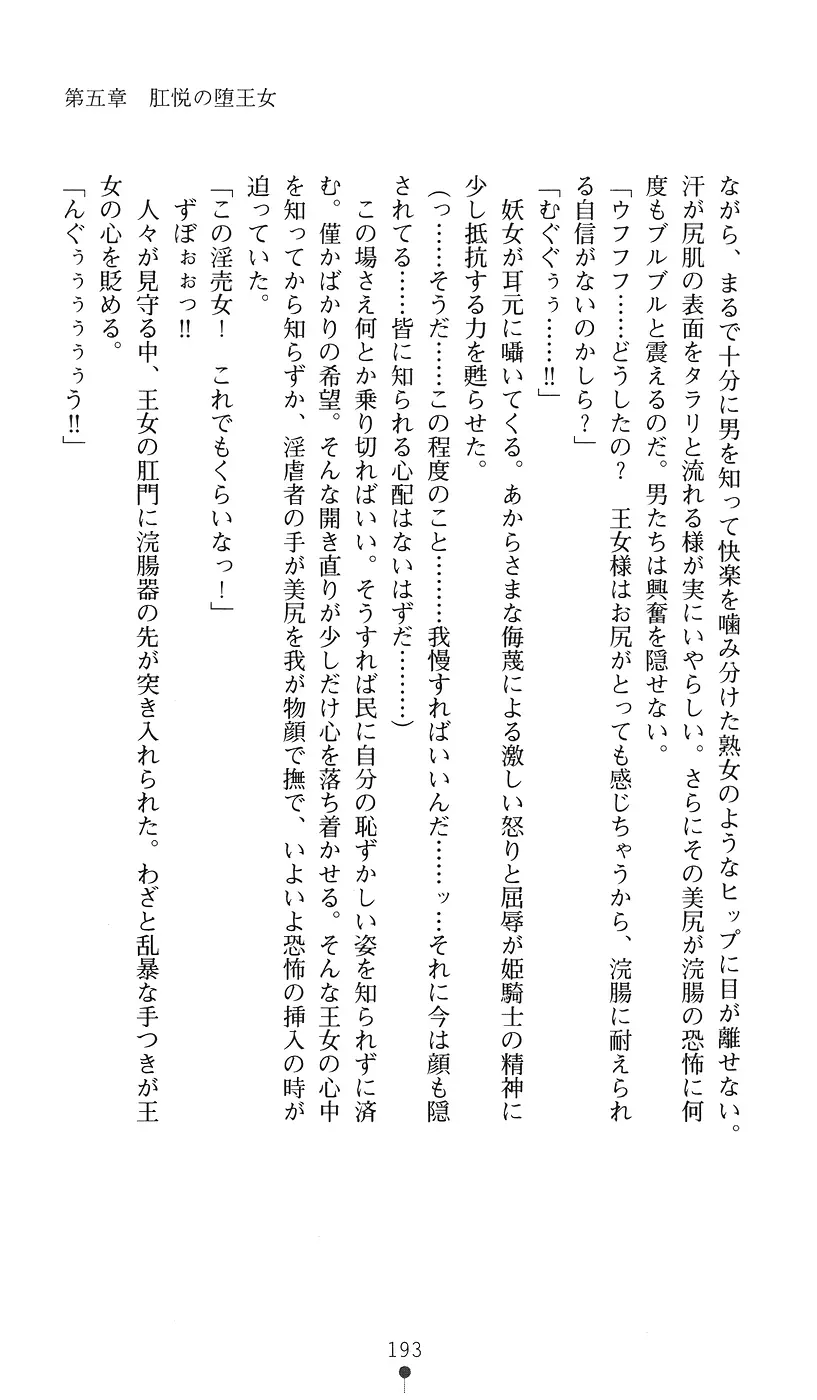 第五章　肛悦の堕王女
ながら、まるで十分に男を知って快楽を噛み分けた熟女のようなヒップに目が離せない。
汗が尻肌の表面をタラリと流れる様が実にいやらしい。さらにその美尻が浣腸の恐怖に何
度もブルブルと震えるのだ。男たちは興奮を隠せない。
「ウフフフ……どうしたの？　王女様はお尻がとっても感じちゃうから、浣腸に耐えられ
る自信がないのかしら？」
「むぐぐぅぅ……‼」
　妖女が耳元に囁いてくる。あからさまな侮蔑による激しい怒りと屈辱が姫騎士の精神に
少し抵抗する力を甦らせた。
（っ……そうだ……この程度のこと………我慢すればいいんだ……ッ…それに今は顔も隠
されてる……皆に知られる心配はないはずだ………）
　この場さえ何とか乗り切ればいい。そうすれば民に自分の恥ずかしい姿を知られずに済
む。僅かばかりの希望。そんな開き直りが少しだけ心を落ち着かせる。そんな王女の心中
を知ってから知らずか、淫虐者の手が美尻を我が物顔で撫で、いよいよ恐怖の挿入の時が
迫っていた。
「この淫売女！　これでもくらいなっ！」
　ずぼぉぉっ‼
　人々が見守る中、王女の肛門に浣腸器の先が突き入れられた。わざと乱暴な手つきが王
女の心を貶める。
「んぐぅぅぅぅぅう‼」
193